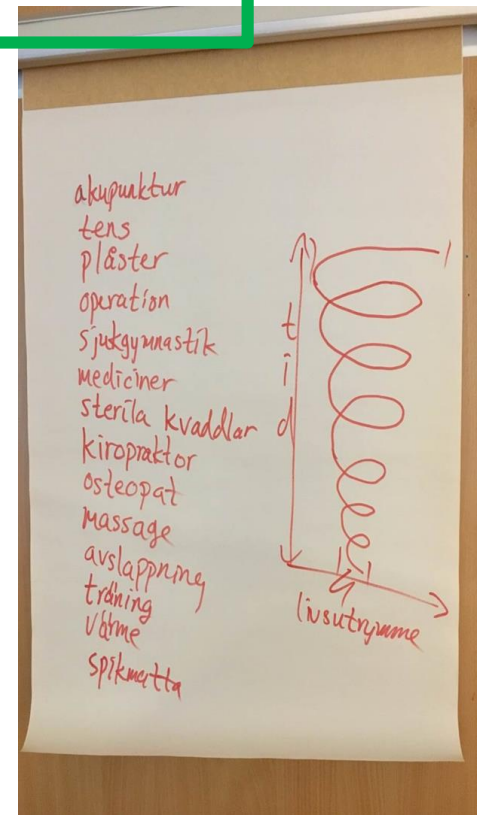 akupunktur
tens
plåster
operation
sjukgymnastik
mediciner
sterila kvaddlar
kiropraktor
osteopat
massage
avslappning
träning
värme
spikmatta
tid
livsutrymme